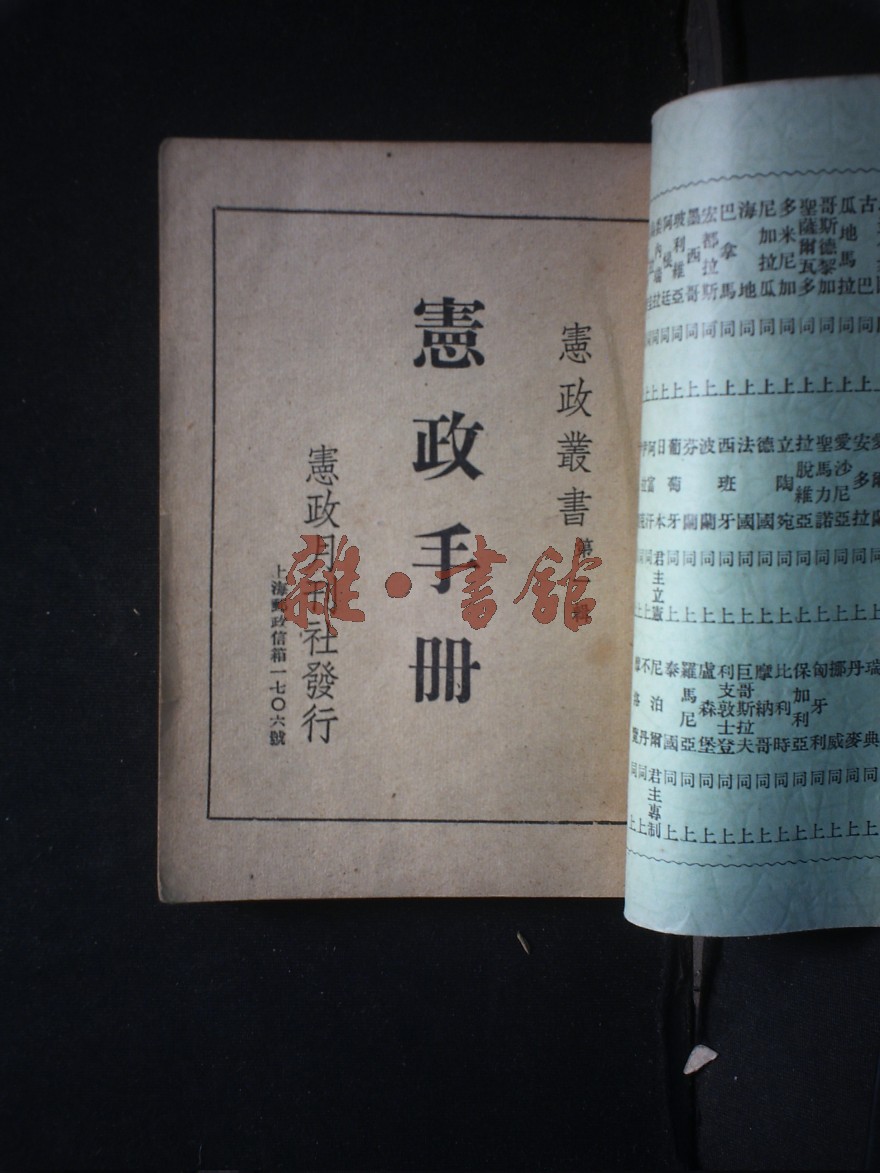 古巴 同上
瓜地馬拉 同上
哥斯德黎加 同上
聖薩爾瓦多 同上
多米尼加 同上
尼加拉瓜 同上
海地 同上
巴拿馬 同上
宏都拉斯 同上
墨西哥 同上
玻利維亞 同上
阿根廷 同上
委內瑞拉 同上
愛爾蘭 同上
安多拉 同上
愛沙尼亞 同上
聖馬力諾 同上
拉脫維亞 同上
立陶宛 同上
德國 同上
法國 同上
西班牙 同上
波蘭 同上
芬蘭 同上
葡萄牙 同上
日本 君主立憲
阿富汗 同上
瑞典 同上
丹麥 同上
挪威 同上
匈牙利 同上
保加利亞 同上
比利時 同上
摩納哥 同上
巨哥斯拉夫 同上
利支敦士登 同上
盧森堡 同上
羅馬尼亞 同上
泰國 同上
尼泊爾 君主專制
不丹 同上
憲政叢書第一輯
憲政手冊
憲政月刊社發行
上海郵政信箱一七〇六號
雜·書館